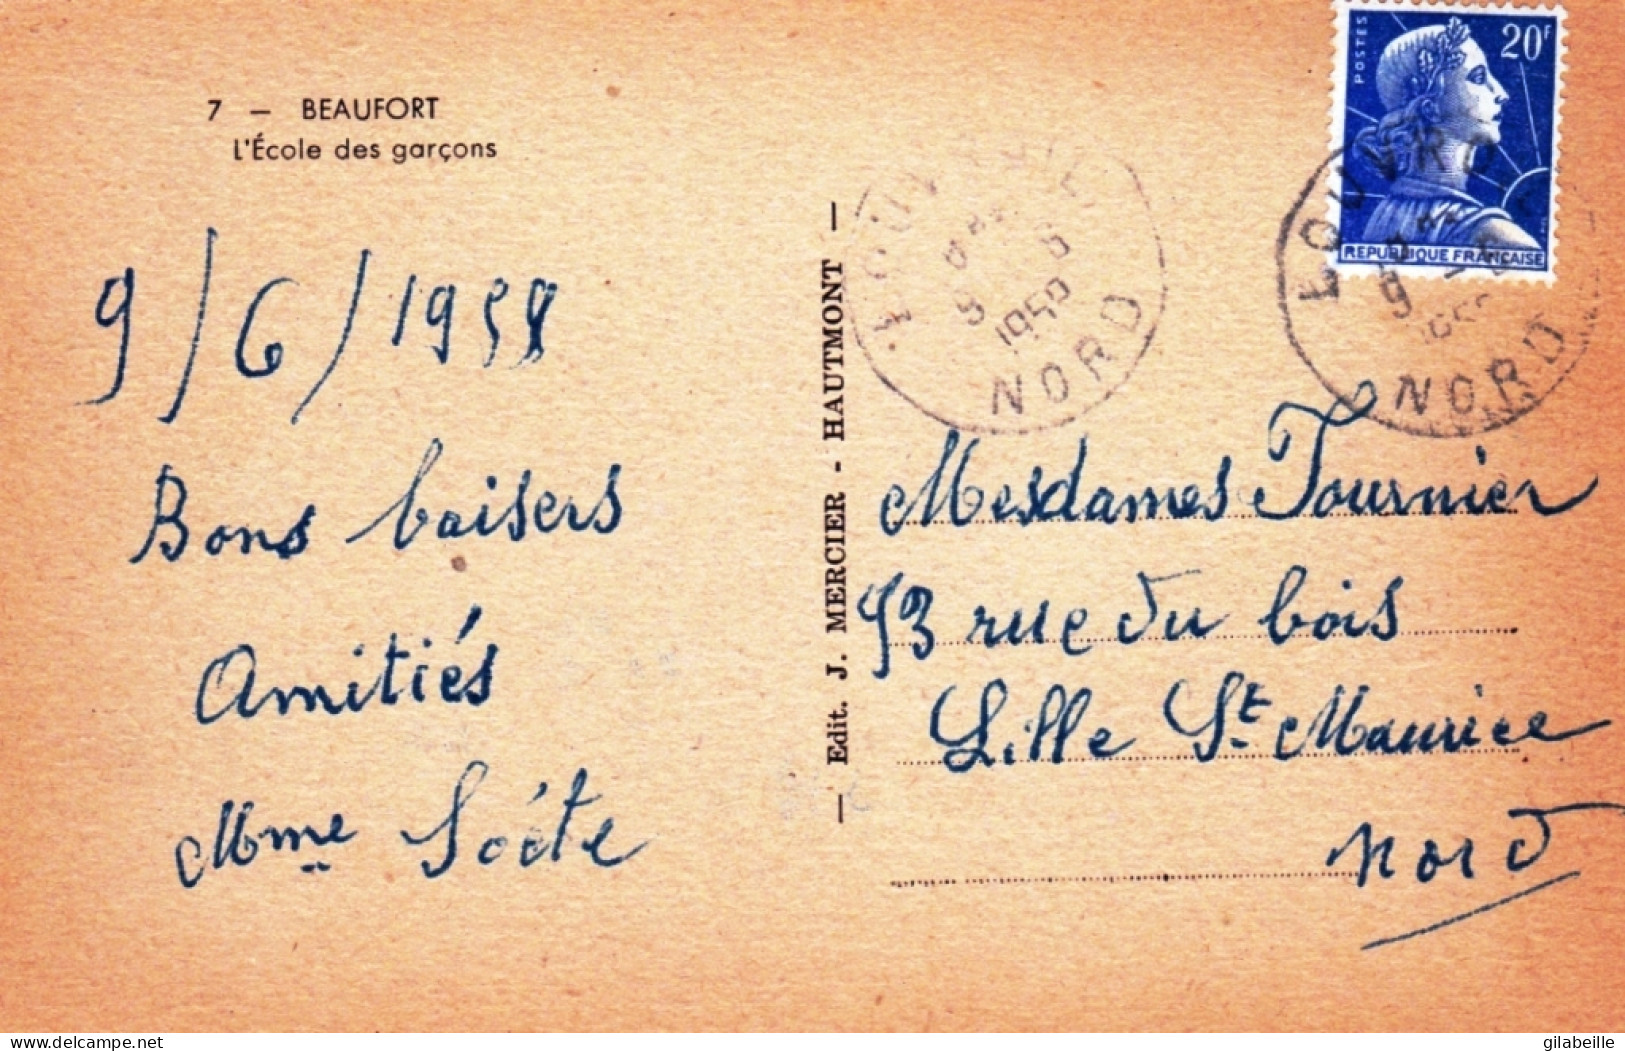 7 — BEAUFORT
L'École des garçons
9/6/1958
Bons baisers
Amitiés
Mme Soète
— Edit. J. MERCIER - HAUTMONT —
POSTES
20F
REPUBLIQUE FRANÇAISE
NORD
1958
NORD
Mesdames Tournier
53 rue du bois
Lille St Maurice
Nord
delcampe.net
gilabeille